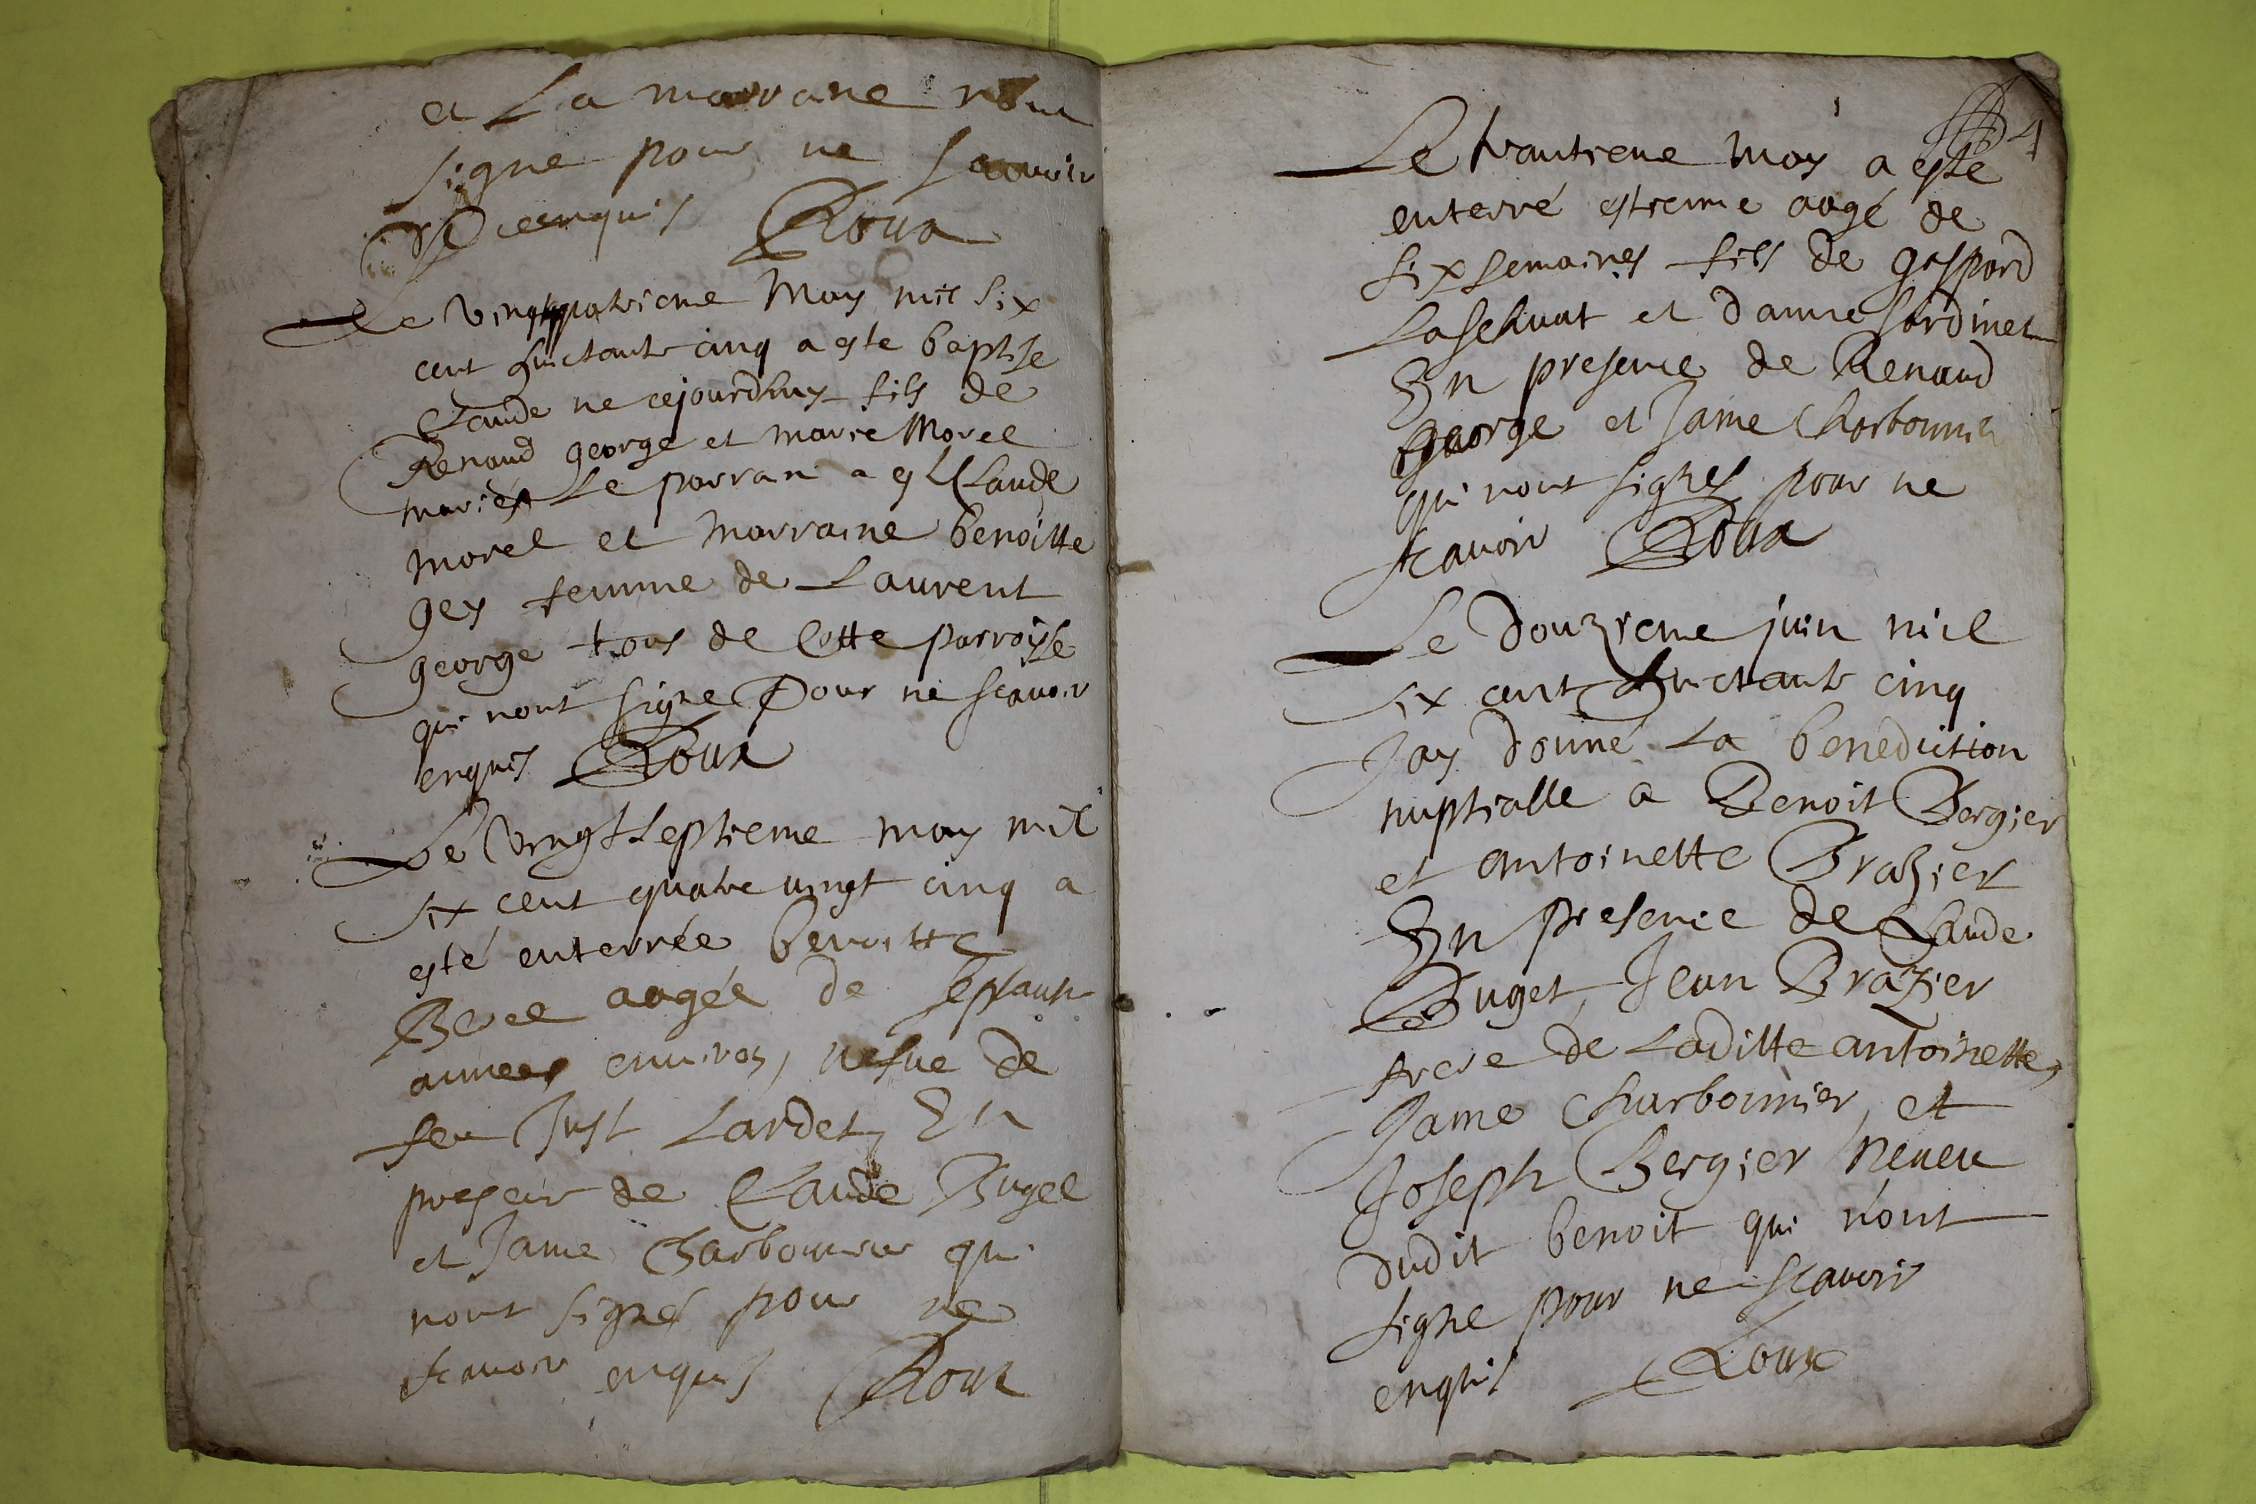 et La marrane nont
signe pour ne scavoir
De ce enquis Roux
Le vingtquatrieme may mil six
cent huictante cinq a este baptise
Claude ne cejourdhuy fils de
Renaud george et marie Morel
mariés Le parrain a este Claude
morel et marraine benoitte
gey femme de Laurent
george tous de Cette parroisse
qui nont signe Pour ne scavoir
enquis Roux
Le vingtseptieme may mil
six cent quatre vingt cinq a
esté enterrée benoitte
aagée de septante
annees environ, vefve de
feu Just Lardet, En
presence de Claude Buget
et Jame Charbonnier qui
nont signés pour ne
scavoir enquis Roux
4
Le trantieme may a esté
enterré estienne aagé de
six semaines fils de gaspard
et danne Jardinet
En presence de Renaud
george et Jame Charbonnier
qui nont signes pour ne
scavoir Roux
Le douzieme juin mil
six cent huictante cinq
Jay donné La benediction
nuptialle a Benoit Bergier
et antoinette Brazier
En presence de Claude
Buget, Jean Brazier
frere de Laditte antoinette,
Jame Charbonnier, et
Joseph Bergier neveu
dudit benoit qui n'ont
signe pour ne scavoir
enquis Roux